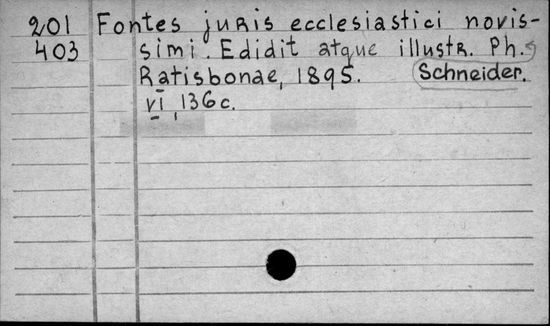 201 Fontes juris ecclesiastici novis-
403 simi. Edidit atque illustr. Ph.
Ratisbonae, 1895. Schneider.
VI, 136 c.